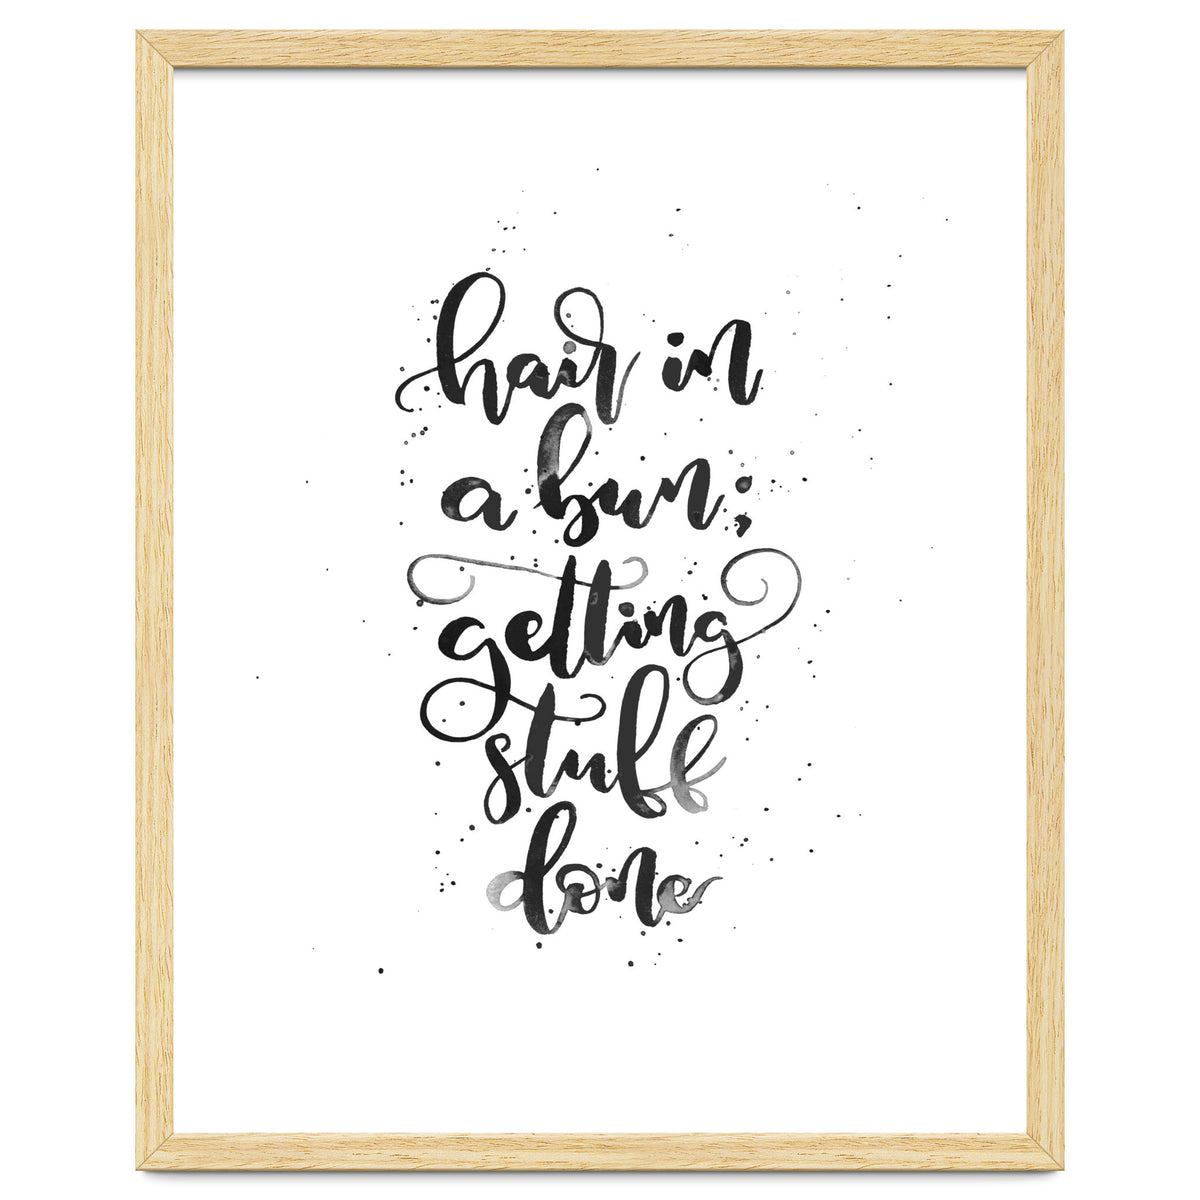 hair in
a bun;
getting
stuff
done